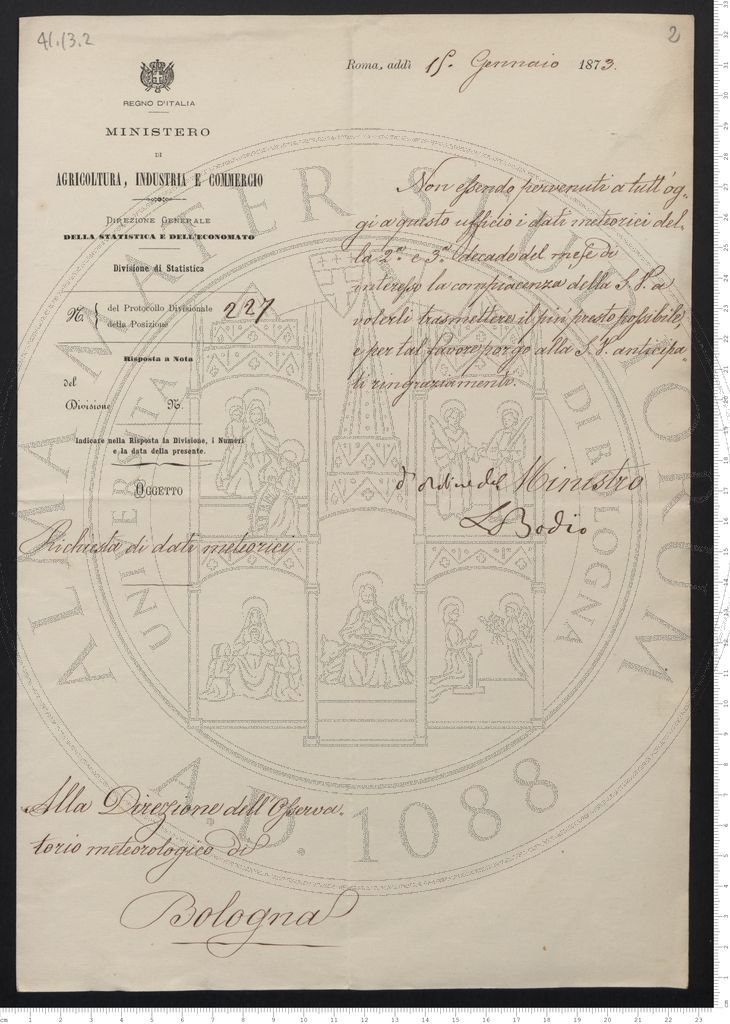 41.13.2
2
Roma, addì 15. Gennaio 1873.
REGNO D'ITALIA
MINISTERO
DI
AGRICOLTURA, INDUSTRIA E COMMERCIO
DIREZIONE GENERALE
DELLA STATISTICA E DELL'ECONOMATO
Divisione di Statistica
N. { del Protocollo Divisionale 227
della Posizione
Risposta a Nota
del
Divisione N.
Indicare nella Risposta la Divisione, i Numeri
e la data della presente.
OGGETTO
Richiesta di dati meteorici
Non essendo pervenuti a tutt'og-
gi a questo ufficio i dati meteorici del-
la 2ª e 3ª decade del mese di
interesso la compiacenza della S. V. a
volerli trasmettere il più presto possibile,
e per tal favore porgo alla S. V. anticipa-
ti ringraziamenti.
d'ordine del Ministro
L Bodio
Alla Direzione dell'Osserva-
torio meteorologico di
Bologna
ALMA MATER STUDIORUM
UNIVERSITA DI BOLOGNA
A.D. 1088